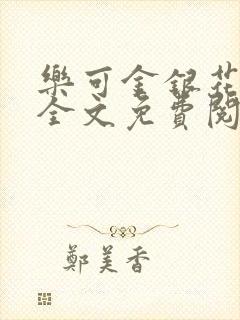 樂可金銀花
全文免費閱
鄭美香